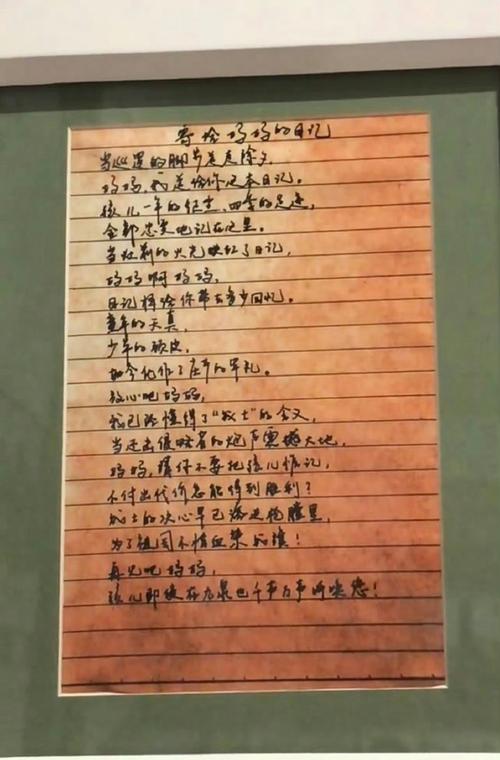 寄给妈妈的日记
当巡逻的脚步送走除夕
妈妈,我送给你这本日记。
孩儿一年的征尘,四季的足迹,
全部忠实地记在这里。
当灶前的火光映红了日记,
妈妈啊妈妈,
日记将给你带去多少回忆。
童年的天真,
少年的顽皮,
如今化作了庄严的军礼。
放心吧妈妈,
我已经懂得了“战士”的含义,
当还击侵略者的炮声震撼大地,
妈妈,请你不要把孩儿惦记,
不付出代价怎能得到胜利?
战士的决心早已溶进枪膛里,
为了祖国不惜血染战旗!
再见吧妈妈,
孩儿即使在九泉也千声万声呼唤您!